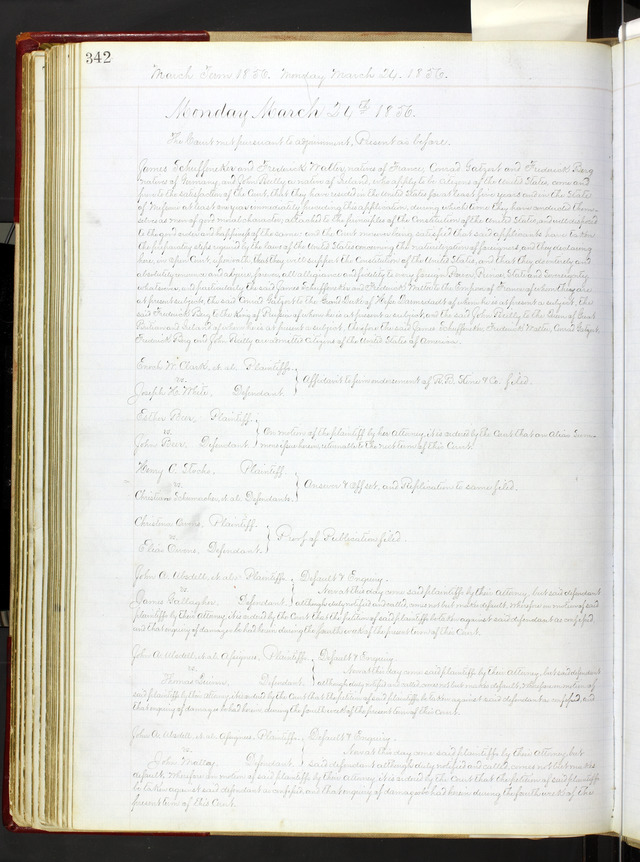 342
March Term 1856. Monday March 24. 1856.
Monday March 24th 1856.
The Court met pursuant to adjournment, Present as before.
James Schuffnecker and Frederick Walter, natives of France, Conrad and Frederick Berg
natives of Germany, and John Reilly a native of Ireland, who apply to be Citizens of the United States come and
prove to the satisfaction of the Court, that they have resided in the United States for at least five years and in the State
of Missouri at least one year immediately preceding this application, during which time they have conducted them-
selves as men of good moral character, attached to the principles of the Constitution of the United States, and well disposed
to the good order and happiness of the same: and the Court moreover being satisfied that said applicants have taken
the preparatory steps required by the laws of the United States concerning the naturalization of foreigners, and they declaring
here, in open Court, upon oath, that they will support the Constitution of the United States, and that they do entirely and
absolutely renounce and abjure forever all allegiance and fidelity to every foreign Power, Prince, State and Sovereignty
whatsoever, and particularly the said James Schuffnecker and Frederick Walter to the Emperor of France of whom they are
at present subjects, the said Conrad to the Grand Duke of Hesse Darmstadt of whom he is at present a subject, the
said Frederick Berg to the King of Prussia of whom he is at present a subject, and the said John Reilly to the Queen of Great
Britain and Ireland of whom he is at present a subject, therefore the said James Schuffnecker, Frederick Walter, Conrad
Frederick Berg and John Reilly are admitted Citizens of the United States of America.
W. Clark, et al. Plaintiffs.
vs.
Joseph H. White, Defendant.
Affidavit to endorsement of R. B. & Co. filed.
Esther Peer, Plaintiff.
vs.
John Peer, Defendant.
On motion of the plaintiff by her Attorney, it is ordered by the Court that an Alias Sum-
mons issue herein, returnable to the next term of this Court.
Henry C. Plaintiff.
vs.
Christian et al. Defendants.
Answer & Offset, and Replication to same filed.
Christina Owens, Plaintiff.
vs.
Elias Owens, Defendant.
Proof of Publication filed.
John A. et als. Plaintiffs,
vs.
James Gallagher, Defendant.
Default & Enquiry.
Now at this day come said plaintiffs by their Attorney, but said defendant
although duly notified and called, comes not but makes default, Wherefore on motion of said
plaintiffs by their Attorney, it is ordered by the Court that the petition of said plaintiffs be taken against said defendant as confessed
and that enquiry of damages be had herein during the fourth week of the present term of this Court.
John A. et al. Assignees, Plaintiffs,
vs.
Thomas Defendant.
Default & Enquiry.
Now at this day come said plaintiffs by their Attorney, but said defendant
although duly notified and called, comes not but makes default, Wherefore on motion of
said plaintiffs by their Attorney, it is ordered by the Court that the petition of said plaintiffs be taken against said defendant as confessed, and
that enquiry of damages be had herein during the fourth week of the present term of this Court.
John A. et al. Assignees, Plaintiffs,
vs.
John Defendant.
Default & Enquiry.
Now at this day come said plaintiffs by their Attorney but
said defendant although duly notified and called, comes not but makes
default, Wherefore on motion of said plaintiffs by their Attorney, it is ordered by the Court that the petition of said plaintiffs
be taken against said defendant as confessed, and that enquiry of damages be had herein during the fourth week of the
present term of this Court.